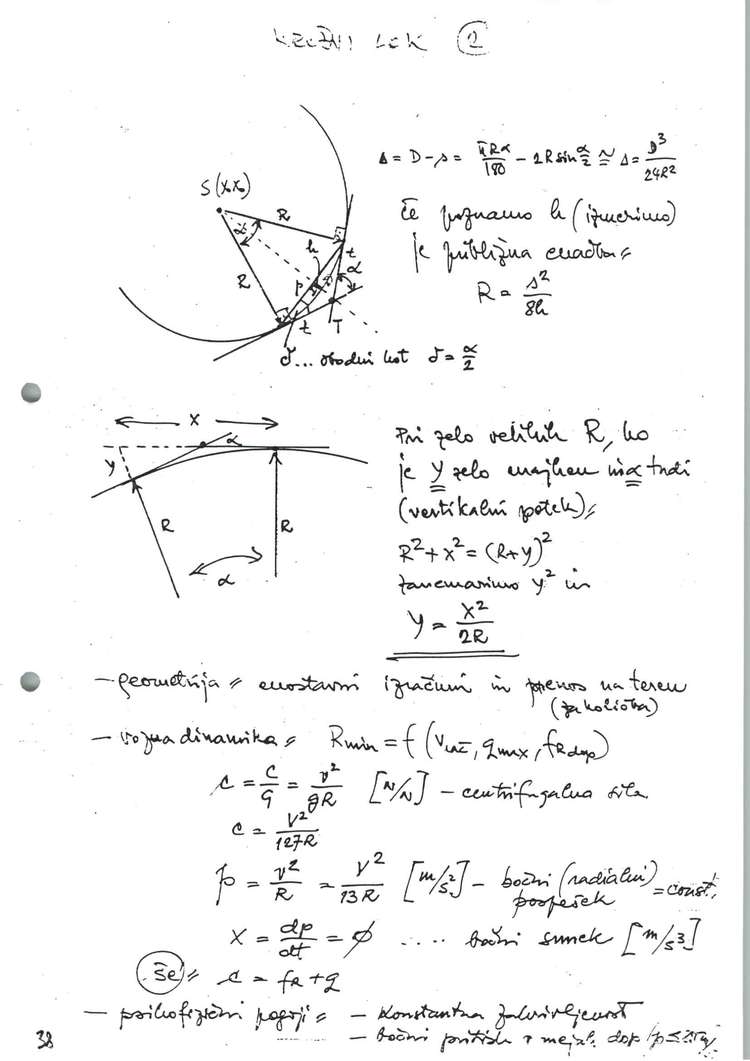 KROŽNI LOK ②
Δ = D - s = πRα/180 - 2R sin α/2 ≅ Δ = D³/24R²
S(x,x)
R
α
h
t
α
R
p
s
t
T
Če poznamo h (izmerimo)
je približna enačba =
R = s²/8h
δ... obodni kot δ = α/2
x
α
y
R
R
α
Pri zelo velikih R, ko
je y zelo majhen in α tudi
(vertikalni potek) =
R² + x² = (R+y)²
zanemarimo y² in
y = x²/2R
- geometrija = enostavni izračuni in prenos na teren
(zakoličba)
- vozna dinamika = Rmin = f (v, qmax, fRdop)
c = C/G = v²/gR [N/N] - centrifugalna sila
c = V²/127R
p = v²/R = V²/13R [m/s²] - bočni (radialni) pospešek = const.
X = dp/dt = ∅ .... bočni sunek [m/s³]
še = c = fR + q
- psihofizični pogoji = - konstantna zakrivljenost
- bočni pritisk v mejah dop
38